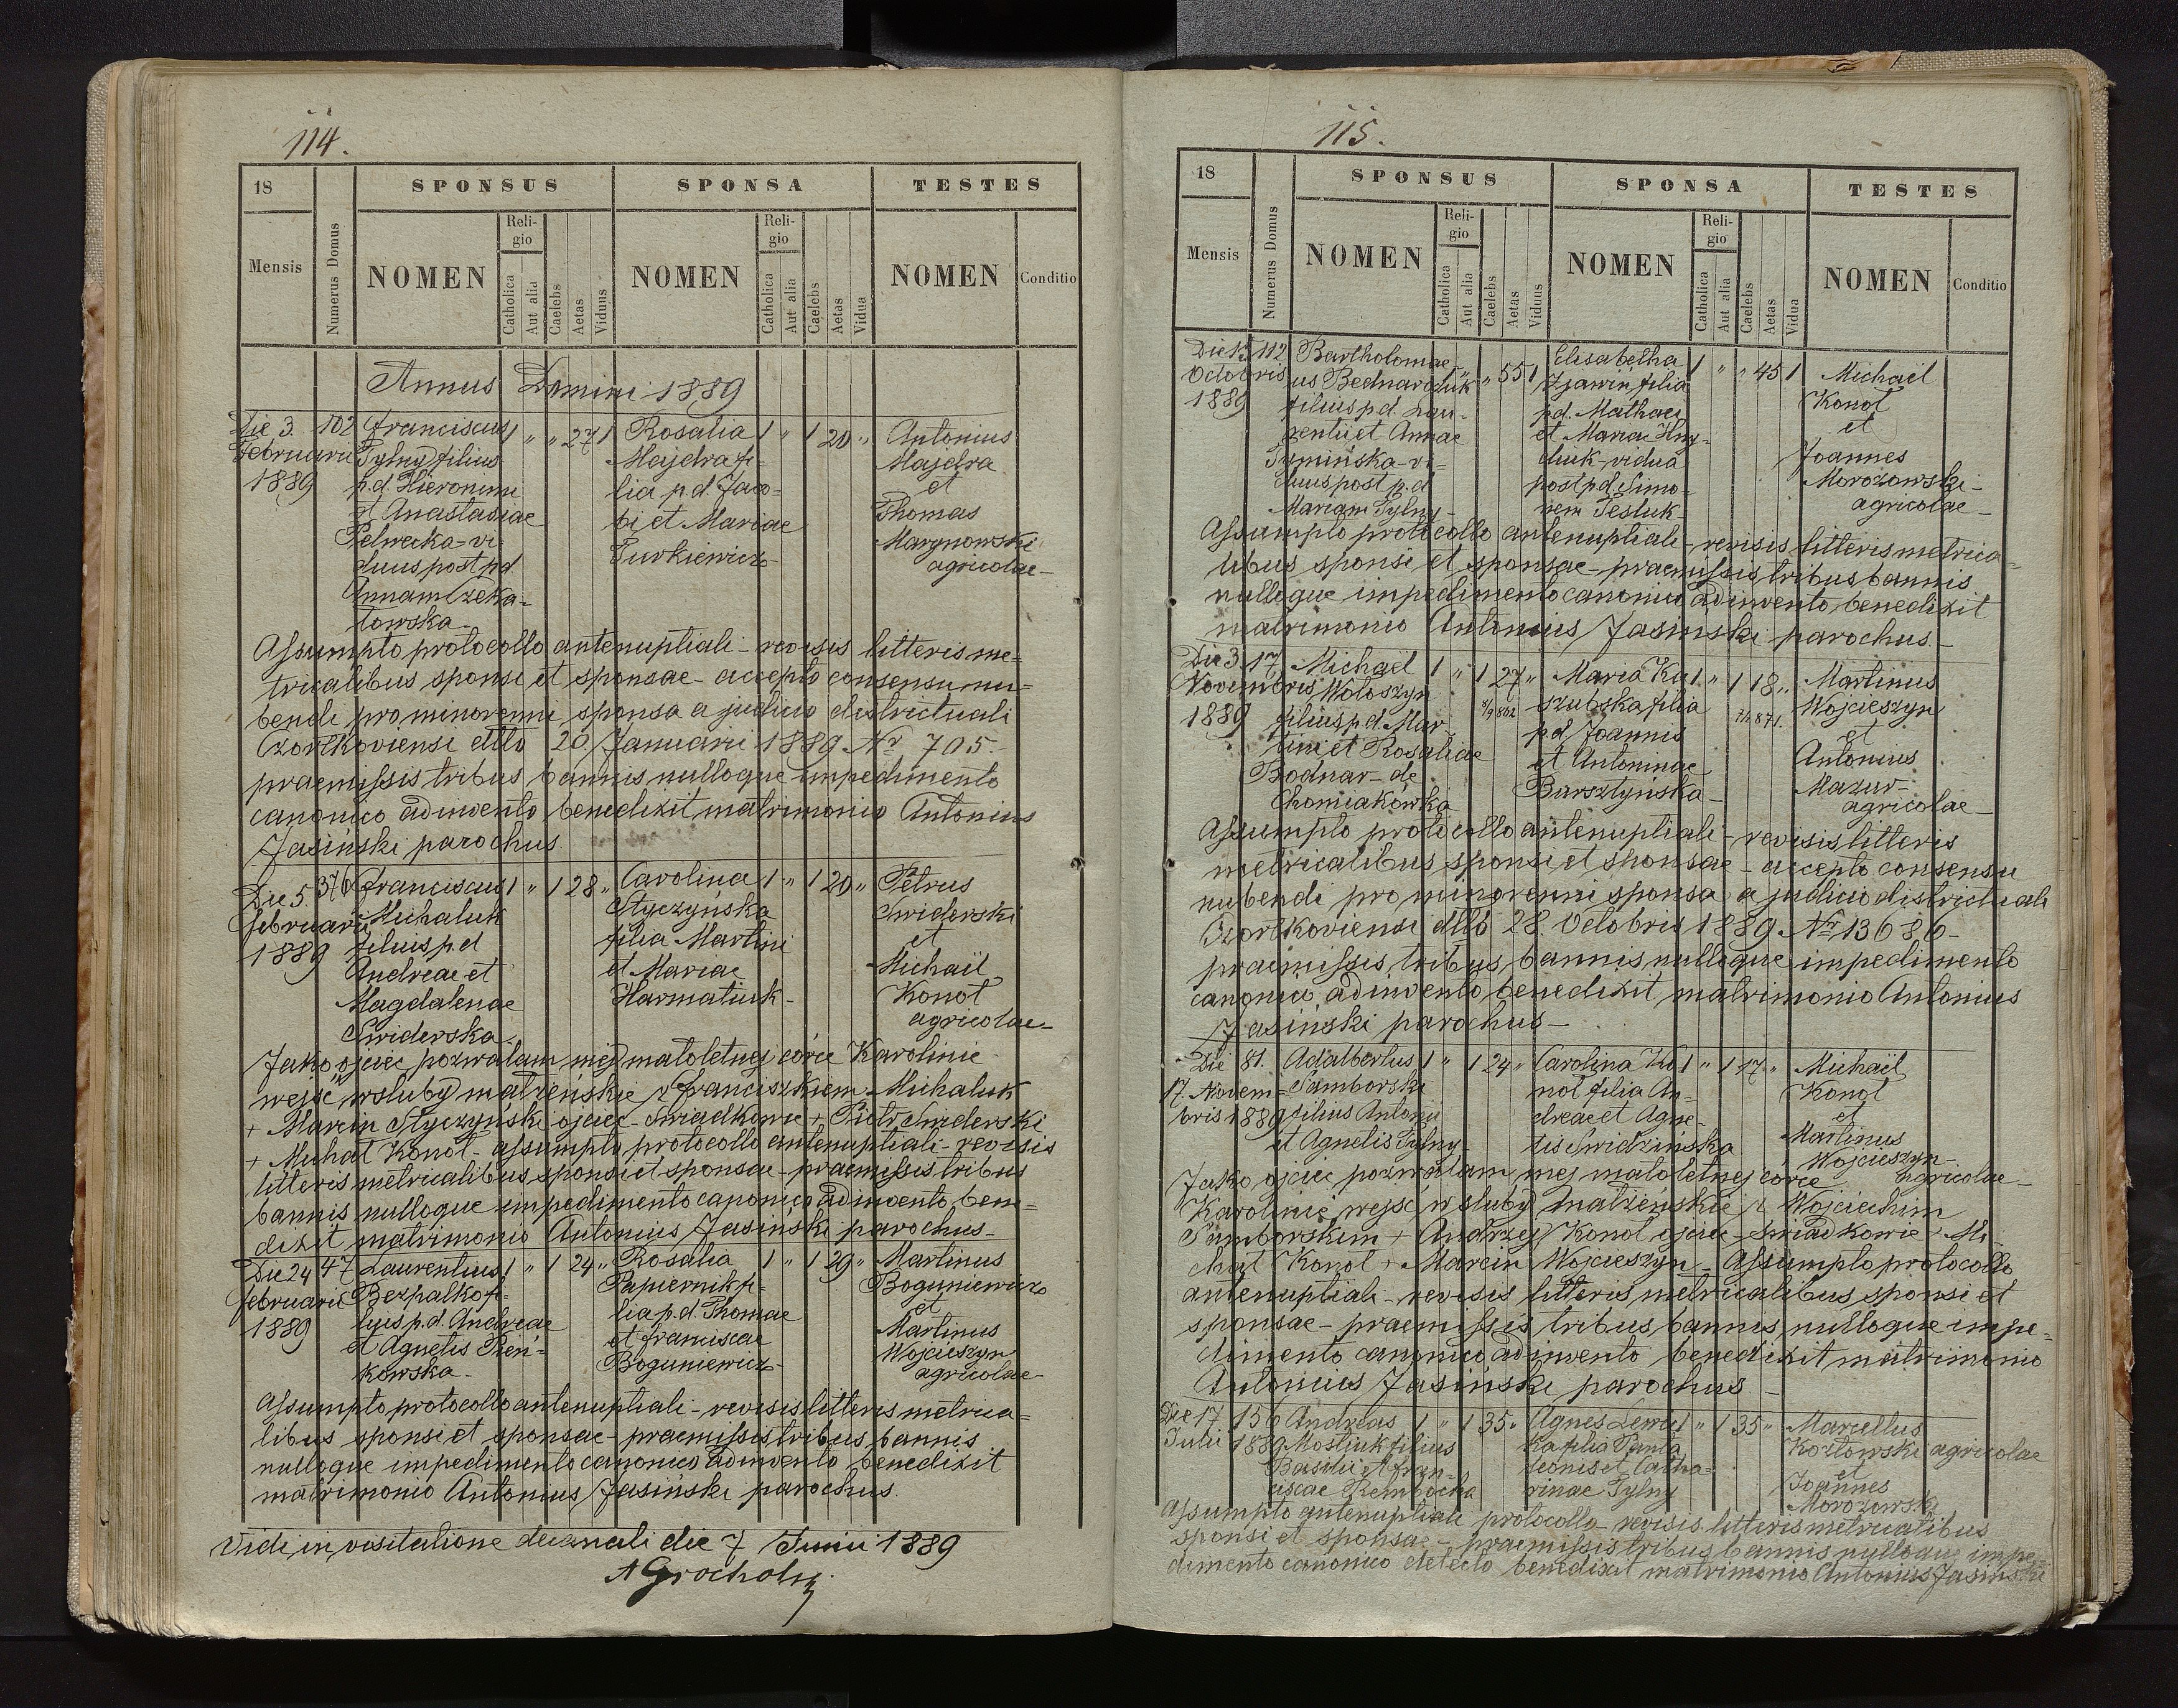 114.
18
SPONSUS
SPONSA
TESTES
Mensis
Numerus Domus
NOMEN
Religio
Catholica
Aut alia
Caelebs
Aetas
Viduus
NOMEN
Religio
Catholica
Aut alia
Caelebs
Aetas
Vidua
NOMEN
Conditio
Annus Domini 1889
Die 3. 102 Franciscus 1 " " 27 1 Rosalia 1 " 1 20 " Antonius
Februarii Tylny filius Majdra fi= Majdra
1889 p.d. Hieronimi lia p.d. Jaco= et
et Anastasiae bi et Mariae Thomas
Pelwecka - vi= Turkiewicz - Marynowski
duus post pd agricolae -
Annam Czeka=
towska -
Assumpto protocollo antenuptiali - revisis litteris me=
tricalibus sponsi et sponsae - accepto consensu nu=
bendi pro minorenni sponsa a judicio districtuali
Czortkoviensi ddto 20 Januarii 1889 Nr 705.
praemissis tribus bannis nulloque impedimento
canonico adinvento benedixit matrimonio Antonius
Jasiński parochus
Die 5. 376 Franciscus 1 " 1 28 " Carolina 1 " 1 20 " Petrus
Februarii Michaluk Styczyńska Swiderski
1889 filius p.d filia Martini et
Andreae et et Mariae Michaël
Magdalenae Harmatiuk - Konot
Swiderska agricolae -
Jako ojciec pozwalam mej małoletniej córce Karolinie
wejść w śluby małżeńskie z Franciszkiem Michaluk
+ Marcin Styczyński ojciec - Swiadkowie + Piotr Swiderski
+ Michał Konot - assumpto protocollo antenuptiali - revisis
litteris metricalibus sponsi et sponsae - praemissis tribus
bannis nulloque impedimento canonico adinvento bene=
dixit matrimonio Antonius Jasiński parochus -
Die 24 47 Laurentius 1 " 1 24 " Rosalia 1 " 1 29 " Martinus
Februarii Bezpalko fi= Papiernik fi= Boguniewicz
1889 lius p.d. Andreae lia p.d. Thomae et
et Agnetis Pień= et Franciscae Martinus
kowska - Boguniewicz - Wojcieszyn
agricolae -
Assumpto protocollo antenuptiali - revisis litteris metrica=
libus sponsi et sponsae - praemissis tribus bannis
nulloque impedimento canonico adinvento benedixit
matrimonio Antonius Jasiński parochus.
Vidi in visitatione decanali die 7 Junii 1889
A Grocholski
115.
18
SPONSUS
SPONSA
TESTES
Mensis
Numerus Domus
NOMEN
Religio
Catholica
Aut alia
Caelebs
Aetas
Viduus
NOMEN
Religio
Catholica
Aut alia
Caelebs
Aetas
Vidua
NOMEN
Conditio
Die 15 112 Bartholomae= 1 " " 55 1 Elisabetha 1 " " 45 1 Michaël
Octobris us Bednarczuk Zjawin filia Konot
1889 filius p.d. Lau= pd. Mathaei et
rentii et Annae et Mariae Hny= Joannes
Tymińska - vi= diuk - vidua Morozowski -
duus post p.d post p.d. Simo= agricolae -
Mariam Tylny - nem Tesluk -
Assumpto protocollo antenuptiali - revisis litteris metrica=
libus sponsi et sponsae - praemissis tribus bannis
nulloque impedimento canonico adinvento benedixit
matrimonio Antonius Jasiński parochus -
Die 3. 17 Michaël 1 " 1 27 " Maria Ku 1. " 1 18 " Martinus
Novembris Wołoszyn szubska filia Wojcieszyn
1889 filius p.d. Mar= pd Joannis et
tini et Rosaliae et Antoninae Antonius
Bodnar - de Barsztyńska - Mazur -
Chomiakówka agricolae -
Assumpto protocollo antenuptiali - revisis litteris
metricalibus sponsi et sponsae - accepto consensu
nubendi pro minorenni sponsa a judicio districtuali
Czortkoviensi ddto 28. Octobris 1889 Nr 13686 -
praemissis tribus bannis nulloque impedimento
canonico adinvento benedixit matrimonio Antonius
Jasiński parochus -
Die 81. Adalbertus 1 " 1 24 " Carolina Ko 1 " 1 17 " Michaël
17. Novem= Samborski not filia An= Konot
bris 1889 filius Antonii dreae et Agne= et
et Agnetis Tylny tis Swidzińska Martinus
Wojcieszyn -
agricolae -
Jako ojciec pozwalam mej małoletnej córce
Karolinie wejść w śluby małżeńskie z Wojciechim
Samborskim + Andrzej Konot ojciec - świadkowie + Mi=
chał Konot + Marcin Wojcieszyn - Assumpto protocollo
antenuptiali - revisis litteris metricalibus sponsi et
sponsae - praemissis tribus bannis nulloque impe=
dimento canonico adinvento benedixit matrimonio
Antonius Jasiński parochus -
Die 17 156 Andreas 1 " 1 35 " Agnes Lewic 1 " 1 35 " Marcellus
Julii 1889 Mostiuk filius ka filia Panta Kozłowski agricolae
Basilii et Fran= leonis et Catha= et
ciscae Rembocha rinae Tylny Joannes
Morozowski
Assumpto antenuptiali protocollo - revisis litteris metricalibus
sponsi et sponsae - praemissis tribus bannis nulloque impe=
dimento canonico detecto benedixit matrimonio Antonius Jasiński